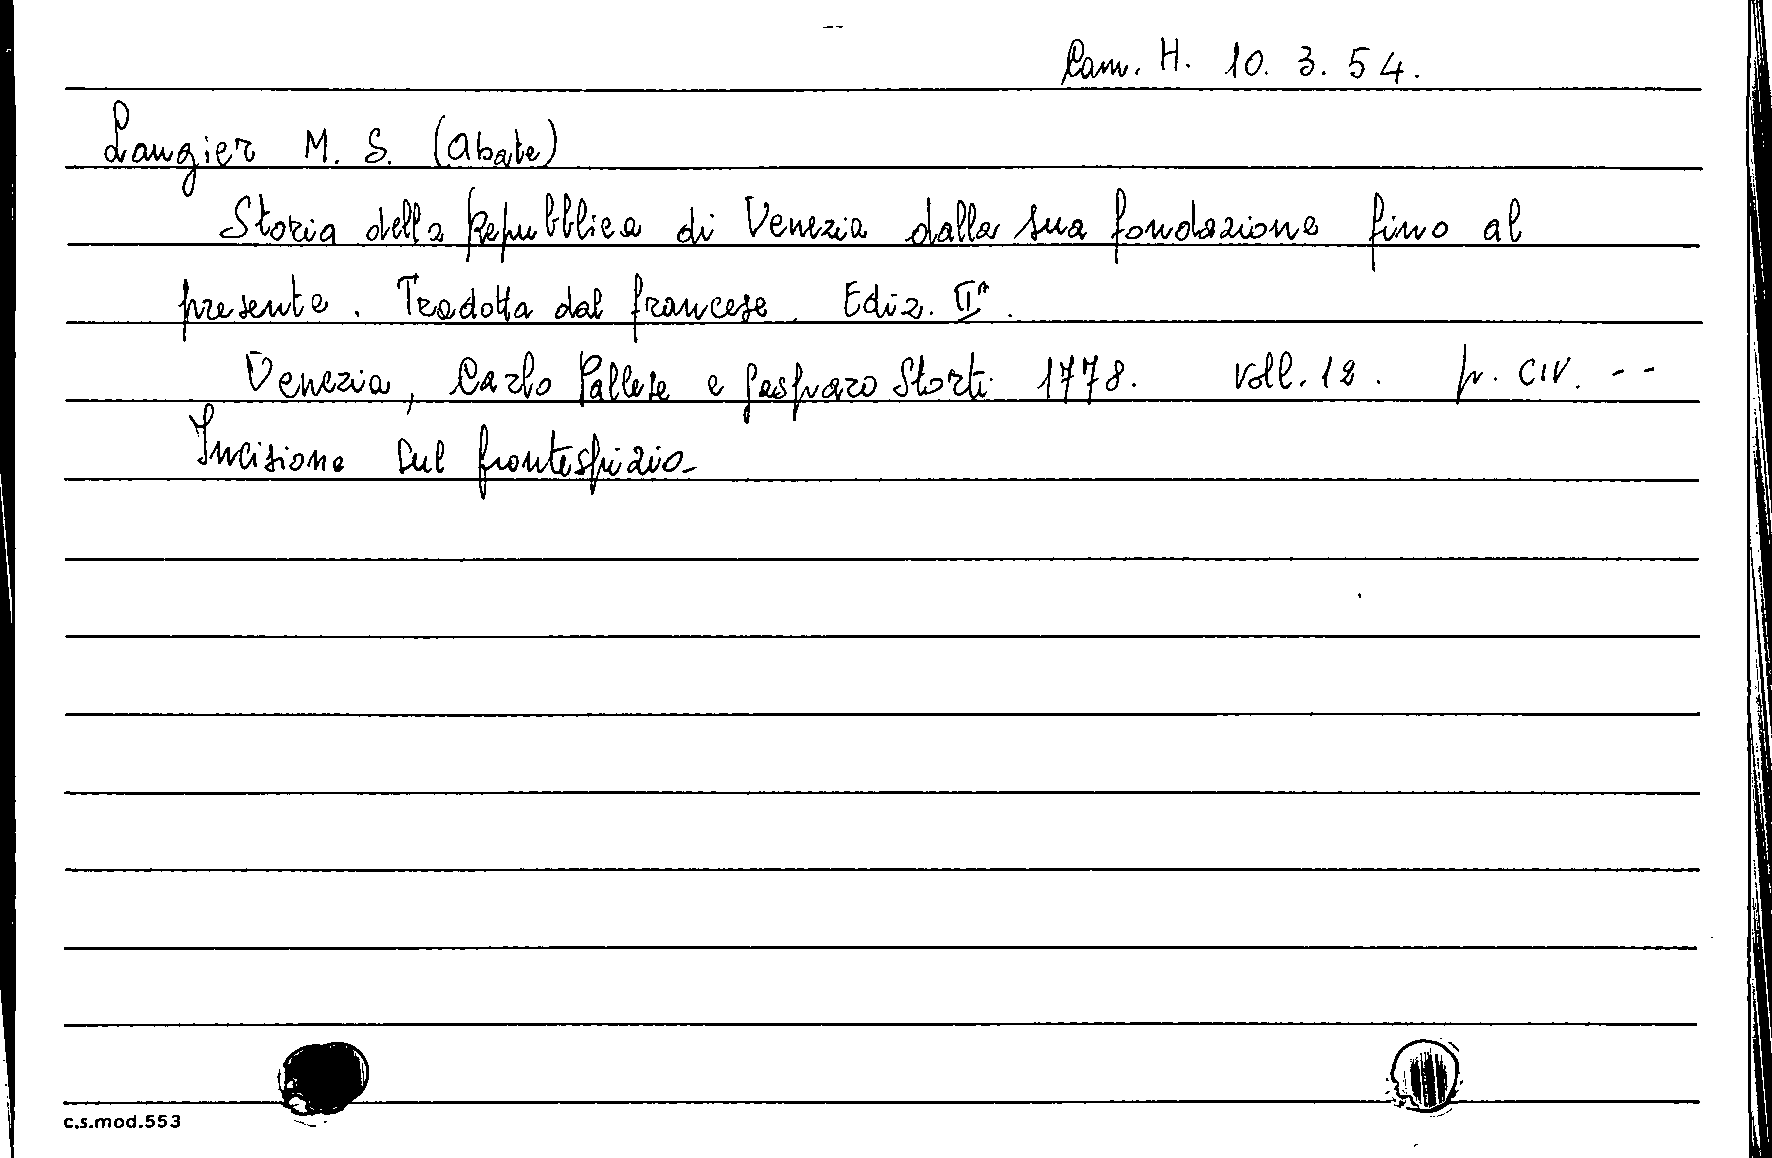 Cam. H. 10. 3. 54.
Laugier M. S. (Abate)
Storia della Repubblica di Venezia dalla sua fondazione fino al
presente. Tradotta dal francese. Ediz. IIª.
Venezia, Carlo Pallese e Gasparo Storti 1778. voll. 12. p. CIV. --
Incisione sul frontespizio-
c.s.mod.553